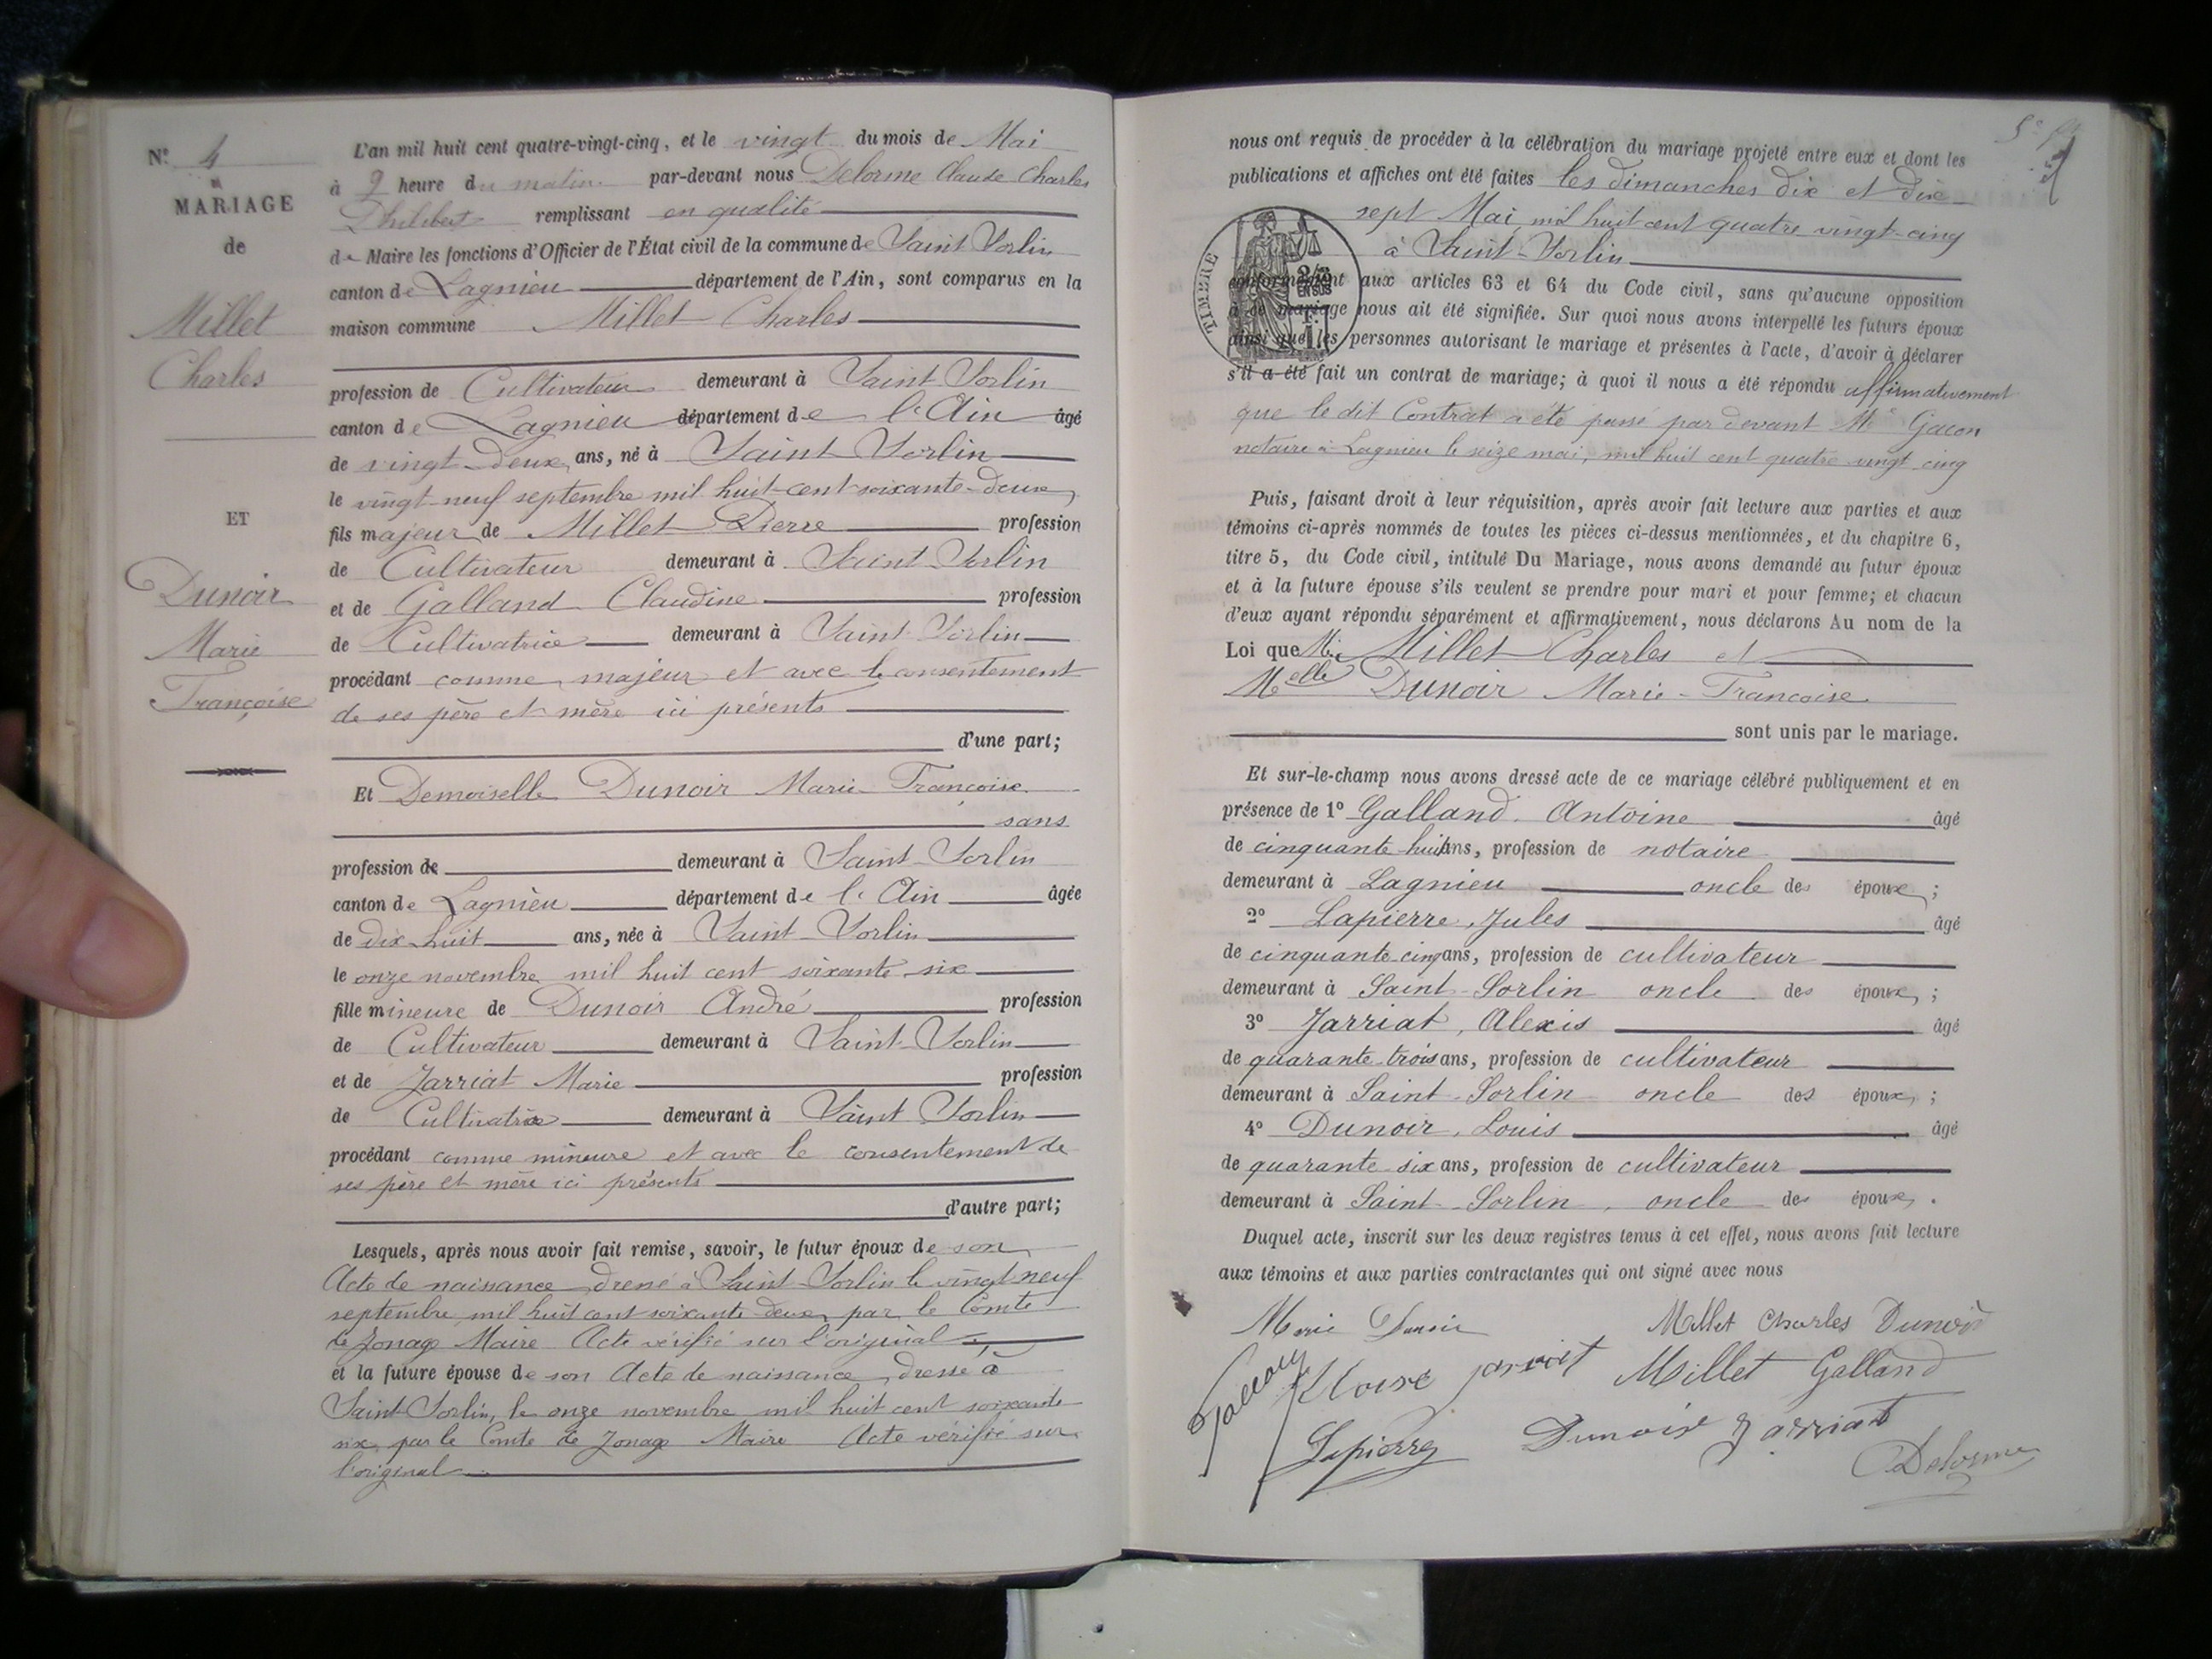 N° 4
MARIAGE
de
Millet
Charles
ET
Dunoir
Marie
Françoise
L'an mil huit cent quatre-vingt-cinq, et le vingt du mois de Mai
à 9 heure du matin par-devant nous Delorme Claude Charles
Philibert remplissant en qualité
de Maire les fonctions d'Officier de l'État civil de la commune de Saint Sorlin
canton de Lagnieu département de l'Ain, sont comparus en la
maison commune Millet Charles
profession de Cultivateur demeurant à Saint Sorlin
canton de Lagnieu département de l'Ain âgé
de vingt-deux ans, né à Saint Sorlin
le vingt-neuf septembre mil huit-cent-soixante-deux
fils majeur de Millet Pierre profession
de Cultivateur demeurant à Saint-Sorlin
et de Galland Claudine profession
de Cultivatrice demeurant à Saint-Sorlin
procédant comme majeur et avec le consentement
de ses père et mère ici présents
d'une part;
Et Demoiselle Dunoir Marie Françoise
sans
profession de demeurant à Saint-Sorlin
canton de Lagnieu département de l'Ain âgée
de dix huit ans, née à Saint-Sorlin
le onze novembre mil huit cent soixante-six
fille mineure de Dunoir André profession
de Cultivateur demeurant à Saint-Sorlin
et de Jarriat Marie profession
de Cultivatrice demeurant à Saint Sorlin
procédant comme mineure et avec le consentement de
ses père et mère ici présents
d'autre part;
Lesquels, après nous avoir fait remise, savoir, le futur époux de son
Acte de naissance dressé à Saint-Sorlin le vingt neuf
septembre mil huit cent soixante deux, par le Comte
de Jonage Maire Acte vérifié sur l'original
et la future épouse de son Acte de naissance, dressé à
Saint-Sorlin, le onze novembre mil huit cent soixante
six, par le Comte de Jonage Maire Acte vérifié sur
l'original
nous ont requis de procéder à la célébration du mariage projeté entre eux et dont les
publications et affiches ont été faites les dimanches dix et dix
sept Mai mil huit cent quatre vingt-cinq
à Saint-Sorlin
TIMBRE
conformément aux articles 63 et 64 du Code civil, sans qu'aucune opposition
à ce mariage nous ait été signifiée. Sur quoi nous avons interpellé les futurs époux
ainsi que les personnes autorisant le mariage et présentes à l'acte, d'avoir à déclarer
s'il a été fait un contrat de mariage; à quoi il nous a été répondu affirmativement
que le dit Contrat a été passé par devant Me Gacon
notaire à Lagnieu le seize mai, mil huit cent quatre vingt cinq
Puis, faisant droit à leur réquisition, après avoir fait lecture aux parties et aux
témoins ci-après nommés de toutes les pièces ci-dessus mentionnées, et du chapitre 6,
titre 5, du Code civil, intitulé Du Mariage, nous avons demandé au futur époux
et à la future épouse s'ils veulent se prendre pour mari et pour femme; et chacun
d'eux ayant répondu séparément et affirmativement, nous déclarons Au nom de la
Loi que Mr Millet Charles et
Melle Dunoir Marie-Françoise
sont unis par le mariage.
Et sur-le-champ nous avons dressé acte de ce mariage célébré publiquement et en
présence de 1° Galland. Antoine âgé
de cinquante huit ans, profession de notaire
demeurant à Lagnieu oncle des époux;
2° Lapierre, Jules âgé
de cinquante-cinq ans, profession de cultivateur
demeurant à Saint-Sorlin oncle des époux;
3° Jarriat, Alexis âgé
de quarante-trois ans, profession de cultivateur
demeurant à Saint-Sorlin oncle des époux;
4° Dunoir, Louis âgé
de quarante-six ans, profession de cultivateur
demeurant à Saint-Sorlin, oncle des époux.
Duquel acte, inscrit sur les deux registres tenus à cet effet, nous avons fait lecture
aux témoins et aux parties contractantes qui ont signé avec nous
Marie Dunoir Millet Charles Dunoir
Millet Galland
Lapierre Dunoir Jarriat
Delorme